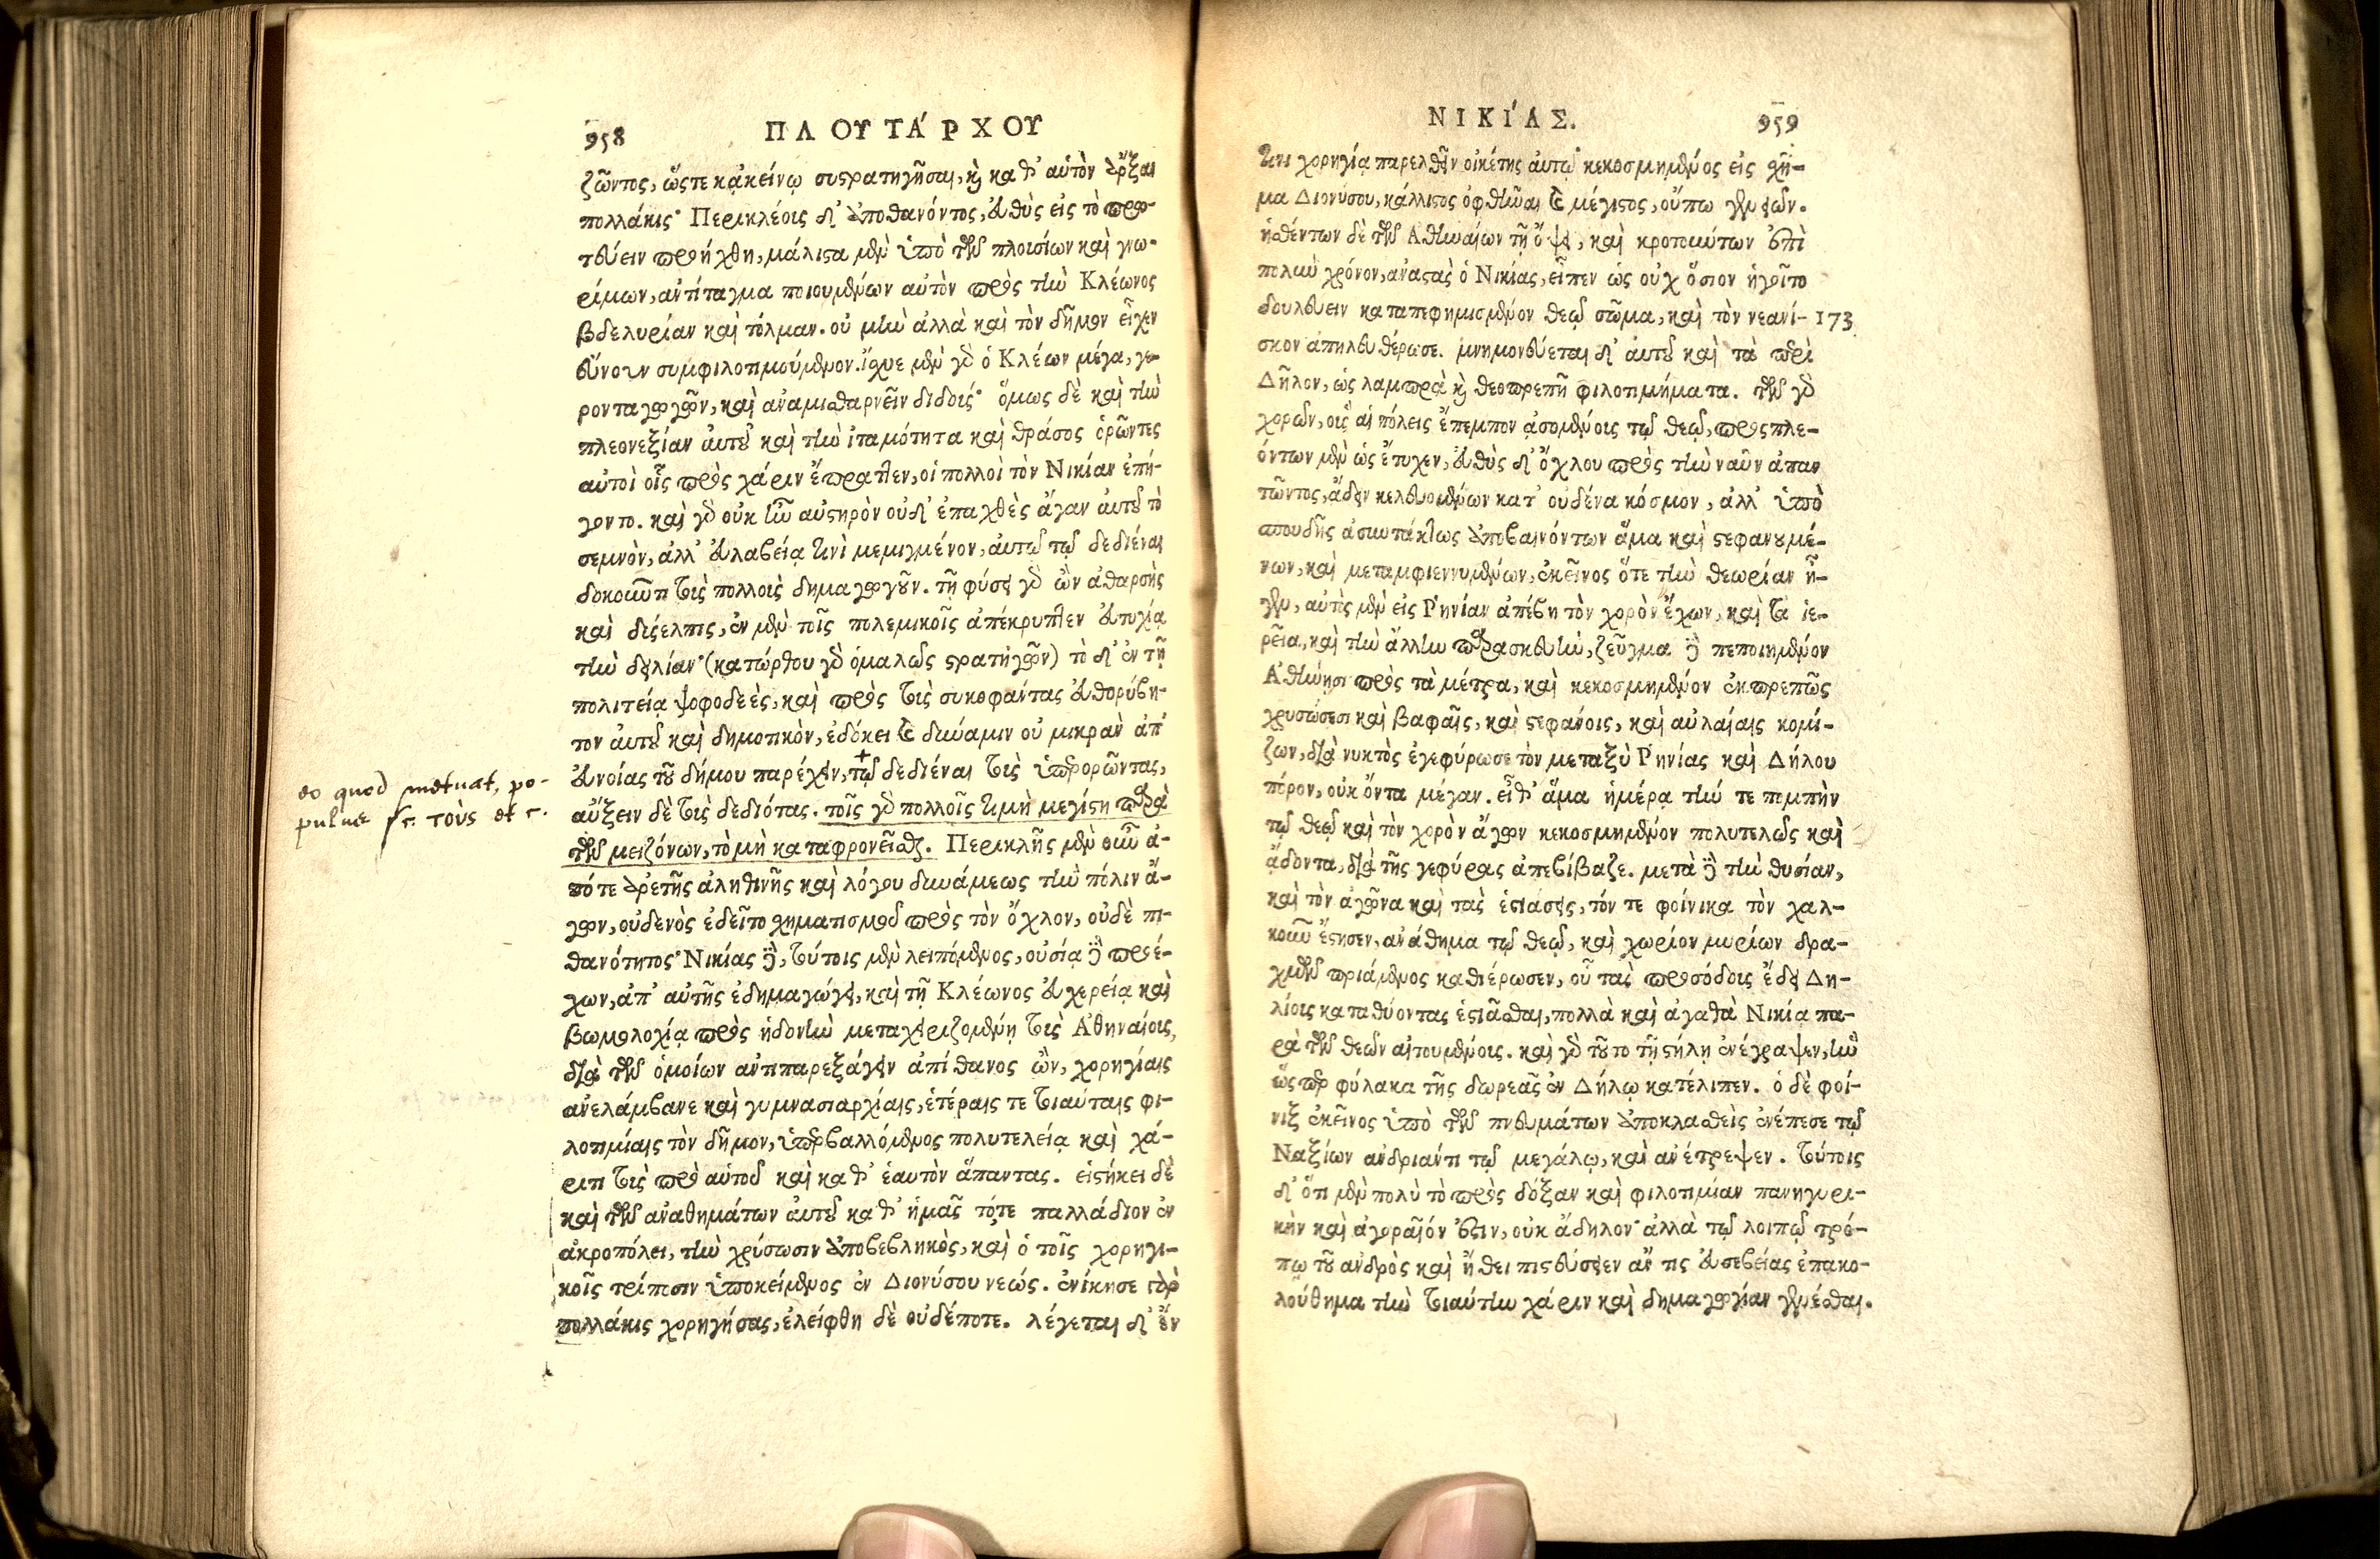 958 ΠΛΟΥΤΑ΄ΡΧΟΥ
ζῶντος, ὥστε κᾀκείνῳ συστρατηγῆσαι, καὶ καθ' αὑτὸν ἄρξαι
πολλάκις· Περικλέοις δ' ἀποθανόντος, εὐθὺς εἰς τὸ πρω-
τεύειν προήχθη, μάλιστα μὲν ὑπὸ τῶν πλουσίων καὶ γνω-
ρίμων, ἀντίταγμα ποιουμένων αὐτὸν πρὸς τὴν Κλέωνος
βδελυρίαν καὶ τόλμαν. οὐ μὴν ἀλλὰ καὶ τὸν δῆμον εἶχεν
εὔνουν συμφιλοτιμούμενον. ἴσχυε μὲν γὰρ ὁ Κλέων μέγα, γε-
ρονταγωγῶν, καὶ ἀναμισθαρνεῖν διδούς· ὅμως δὲ καὶ τὴν
πλεονεξίαν αὐτοῦ καὶ τὴν ἰταμότητα καὶ θράσος ὁρῶντες
αὐτοὶ οἷς πρὸς χάριν ἔπραττεν, οἱ πολλοὶ τὸν Νικίαν ἐπή-
γοντο. καὶ γὰρ οὐκ ἦν αὐστηρὸν οὐδ' ἐπαχθὲς ἄγαν αὐτοῦ τὸ
σεμνὸν, ἀλλ' εὐλαβείᾳ τινὶ μεμιγμένον, αὐτῷ τῷ δεδιέναι
δοκοῦντι τοὺς πολλοὺς δημαγωγοῦν. τῇ φύσει γὰρ ὢν ἀθαρσὴς
καὶ δύσελπις, ἐν μὲν τοῖς πολεμικοῖς ἀπέκρυπτεν εὐτυχίᾳ
τὴν δειλίαν· (κατώρθου γὰρ ὁμαλῶς στρατηγῶν) τὸ δ' ἐν τῇ
πολιτείᾳ ψοφοδεὲς, καὶ πρὸς τοὺς συκοφάντας εὐθορύβη-
τον αὐτοῦ καὶ δημοτικὸν, ἐδόκει καὶ δύναμιν οὐ μικρὰν ἀπ'
εὐνοίας τοῦ δήμου παρέχειν, + τῷ δεδιέναι τοὺς ὑπερορῶντας,
αὔξειν δὲ τοὺς δεδιότας. τοῖς γὰρ πολλοῖς τιμὴ μεγίστη παρὰ
τῶν μειζόνων, τὸ μὴ καταφρονεῖσθαι. Περικλῆς μὲν οὖν ἀ-
πό τε ἀρετῆς ἀληθινῆς καὶ λόγου δυνάμεως τὴν πόλιν ἄ-
γων, οὐδενὸς ἐδεῖτο σχηματισμοῦ πρὸς τὸν ὄχλον, οὐδὲ πι-
θανότητος· Νικίας δὲ, τούτοις μὲν λειπόμενος, οὐσίᾳ δὲ προέ-
χων, ἀπ' αὐτῆς ἐδημαγώγει, καὶ τῇ Κλέωνος εὐχερείᾳ καὶ
βωμολοχίᾳ πρὸς ἡδονὴν μεταχειριζομένῃ τοὺς Ἀθηναίους,
διὰ τῶν ὁμοίων ἀντιπαρεξάγειν ἀπίθανος ὢν, χορηγίαις
ἀνελάμβανε καὶ γυμνασιαρχίαις, ἑτέραις τε τοιαύταις φι-
λοτιμίαις τὸν δῆμον, ὑπερβαλλόμενος πολυτελείᾳ καὶ χά-
ριτι τοὺς πρὸ αὑτοῦ καὶ καθ' ἑαυτὸν ἅπαντας. εἱστήκει δὲ
καὶ τῶν ἀναθημάτων αὐτοῦ καθ' ἡμᾶς τότε παλλάδιον ἐν
ἀκροπόλει, τὴν χρύσωσιν ἀποβεβληκὸς, καὶ ὁ τοῖς χορηγι-
κοῖς τρίποσιν ὑποκείμενος ἐν Διονύσου νεώς. ἐνίκησε γὰρ
πολλάκις χορηγήσας, ἐλείφθη δὲ οὐδέποτε. λέγεται δ' ἔν
eo quod metuat, po-
pulus sc. τοὺς et c.
ΝΙΚΙ΄ΑΣ. 959
τινι χορηγίᾳ παρελθεῖν οἰκέτης αὐτῷ κεκοσμημένος εἰς σχῆ-
μα Διονύσου, κάλλιστος ὀφθῆναι καὶ μέγιστος, οὔπω γενειῶν.
ἡσθέντων δὲ τῶν Ἀθηναίων τῇ ὄψει, καὶ κροτούντων ἐπὶ
πολὺν χρόνον, ἀναστὰς ὁ Νικίας, εἶπεν ὡς οὐχ ὅσιον ἡγοῖτο
δουλεύειν καταπεφημισμένον θεῷ σῶμα, καὶ τὸν νεανί- 173
σκον ἀπηλευθέρωσε. μνημονεύεται δ' αὐτοῦ καὶ τὰ περὶ
Δῆλον, ὡς λαμπρὰ καὶ θεοπρεπῆ φιλοτιμήματα. τῶν γὰρ
χορῶν, οὓς αἱ πόλεις ἔπεμπον ᾀσομένους τῷ θεῷ, προσπλε-
όντων μὲν ὡς ἔτυχεν, εὐθὺς δ' ὄχλου πρὸς τὴν ναῦν ἀπαν
τῶντος, ᾄδειν κελευομένων κατ' οὐδένα κόσμον, ἀλλ' ὑπὸ
σπουδῆς ἀσυντάκτως ἀποβαινόντων ἅμα καὶ στεφανουμέ-
νων, καὶ μεταμφιεννυμένων, ἐκεῖνος ὅτε τὴν θεωρίαν ἦ-
γεν, αὐτὸς μὲν εἰς Ῥηνίαν ἀπέβη τὸν χορὸν ἔχων, καὶ τὰ ἱε-
ρεῖα, καὶ τὴν ἄλλην παρασκευὴν, ζεῦγμα δὲ πεποιημένον
Ἀθήνησι πρὸς τὰ μέτρα, καὶ κεκοσμημένον ἐκπρεπῶς
χρυσώσεσι καὶ βαφαῖς, καὶ στεφάνοις, καὶ αὐλαίαις κομί-
ζων, διὰ νυκτὸς ἐγεφύρωσε τὸν μεταξὺ Ῥηνίας καὶ Δήλου
πόρον, οὐκ ὄντα μέγαν. εἶθ' ἅμα ἡμέρᾳ τήν τε πομπὴν
τῷ θεῷ καὶ τὸν χορὸν ἄγων κεκοσμημένον πολυτελῶς καὶ
ᾄδοντα, διὰ τῆς γεφύρας ἀπεβίβαζε. μετὰ δὲ τὴν θυσίαν,
καὶ τὸν ἀγῶνα καὶ τὰς ἑστιάσεις, τόν τε φοίνικα τὸν χαλ-
κοῦν ἔστησεν, ἀνάθημα τῷ θεῷ, καὶ χωρίον μυρίων δρα-
χμῶν πριάμενος καθιέρωσεν, οὗ τὰς προσόδους ἔδει Δη-
λίους καταθύοντας ἑστιᾶσθαι, πολλὰ καὶ ἀγαθὰ Νικίᾳ πα-
ρὰ τῶν θεῶν αἰτουμένους. καὶ γὰρ τοῦτο τῇ στήλῃ ἐνέγραψεν, ἣν
ὥσπερ φύλακα τῆς δωρεᾶς ἐν Δήλῳ κατέλιπεν. ὁ δὲ φοί-
νιξ ἐκεῖνος ὑπὸ τῶν πνευμάτων ἀποκλασθεὶς ἐνέπεσε τῷ
Ναξίων ἀνδριάντι τῷ μεγάλῳ, καὶ ἀνέτρεψεν. τούτοις
δ' ὅτι μὲν πολὺ τὸ πρὸς δόξαν καὶ φιλοτιμίαν πανηγυρι-
κὴν καὶ ἀγοραῖόν ἐστιν, οὐκ ἄδηλον· ἀλλὰ τῷ λοιπῷ τρό-
πῳ τοῦ ἀνδρὸς καὶ ἤθει πιστεύσειεν ἄν τις εὐσεβείας ἐπακο-
λούθημα τὴν τοιαύτην χάριν καὶ δημαγωγίαν γενέσθαι.